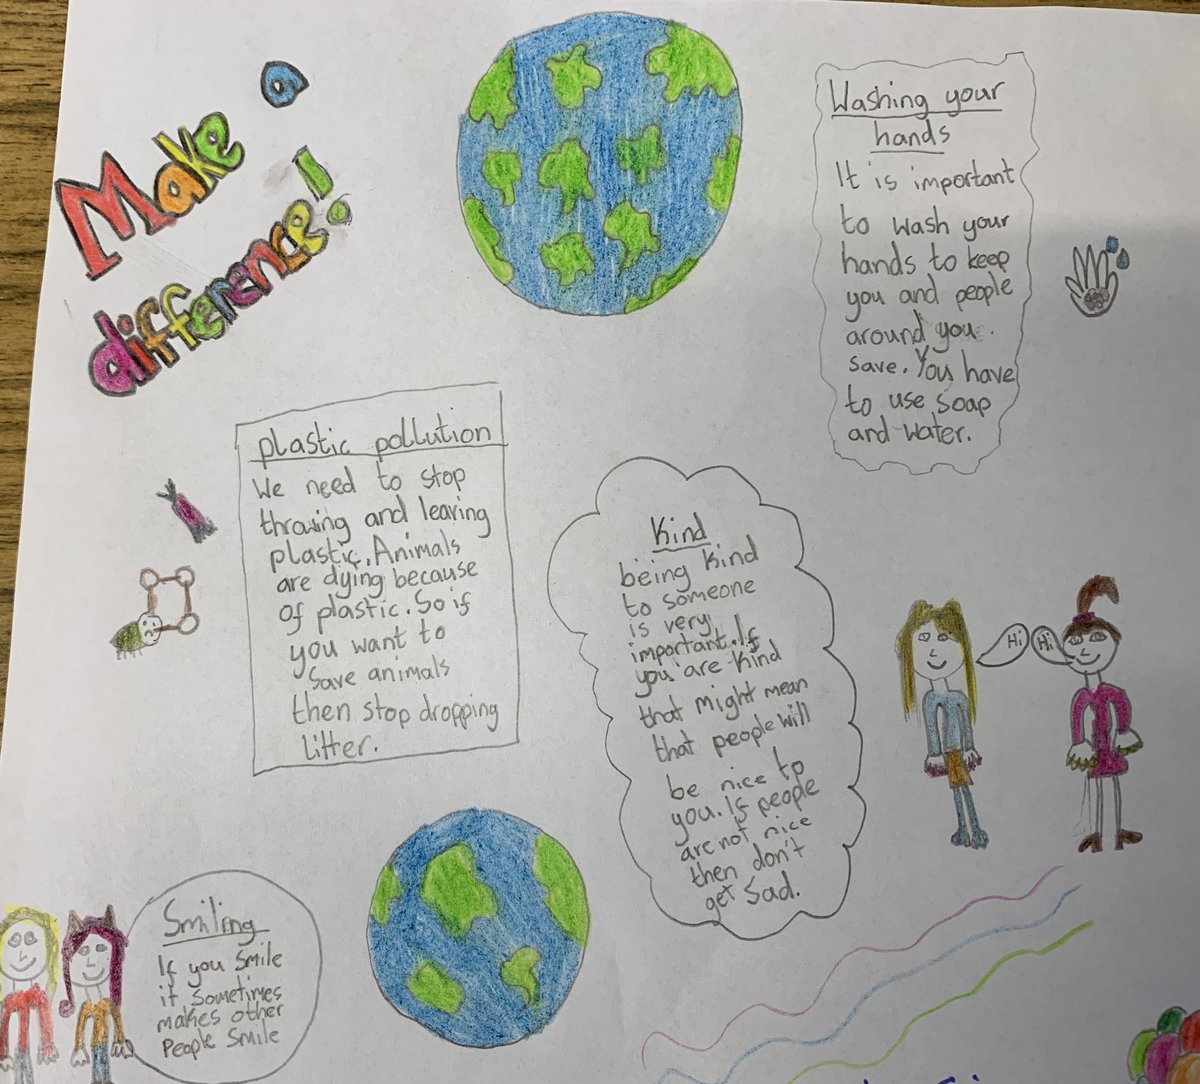 Make a
difference!
Washing your
hands
It is important
to wash your
hands to keep
you and people
around you.
save. You have
to use soap
and water.
plastic pollution
We need to stop
throwing and leaving
plastic. Animals
are dying because
of plastic. So if
you want to
save animals
then stop dropping
litter.
Kind
being kind
to someone
is very
important. If
you are kind
that might mean
that people will
be nice to
you. If people
are not nice
then don't
get sad.
Hi
Hi
Smiling
If you smile
it sometimes
makes other
People smile